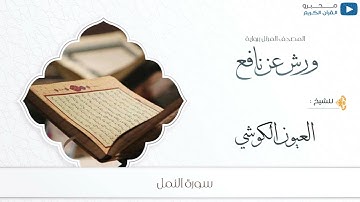 محبرو
القرآن الكريم
المصحف المرتل برواية
ورش عن نافع
للشيخ :
العيون الكوشي
سورة النمل